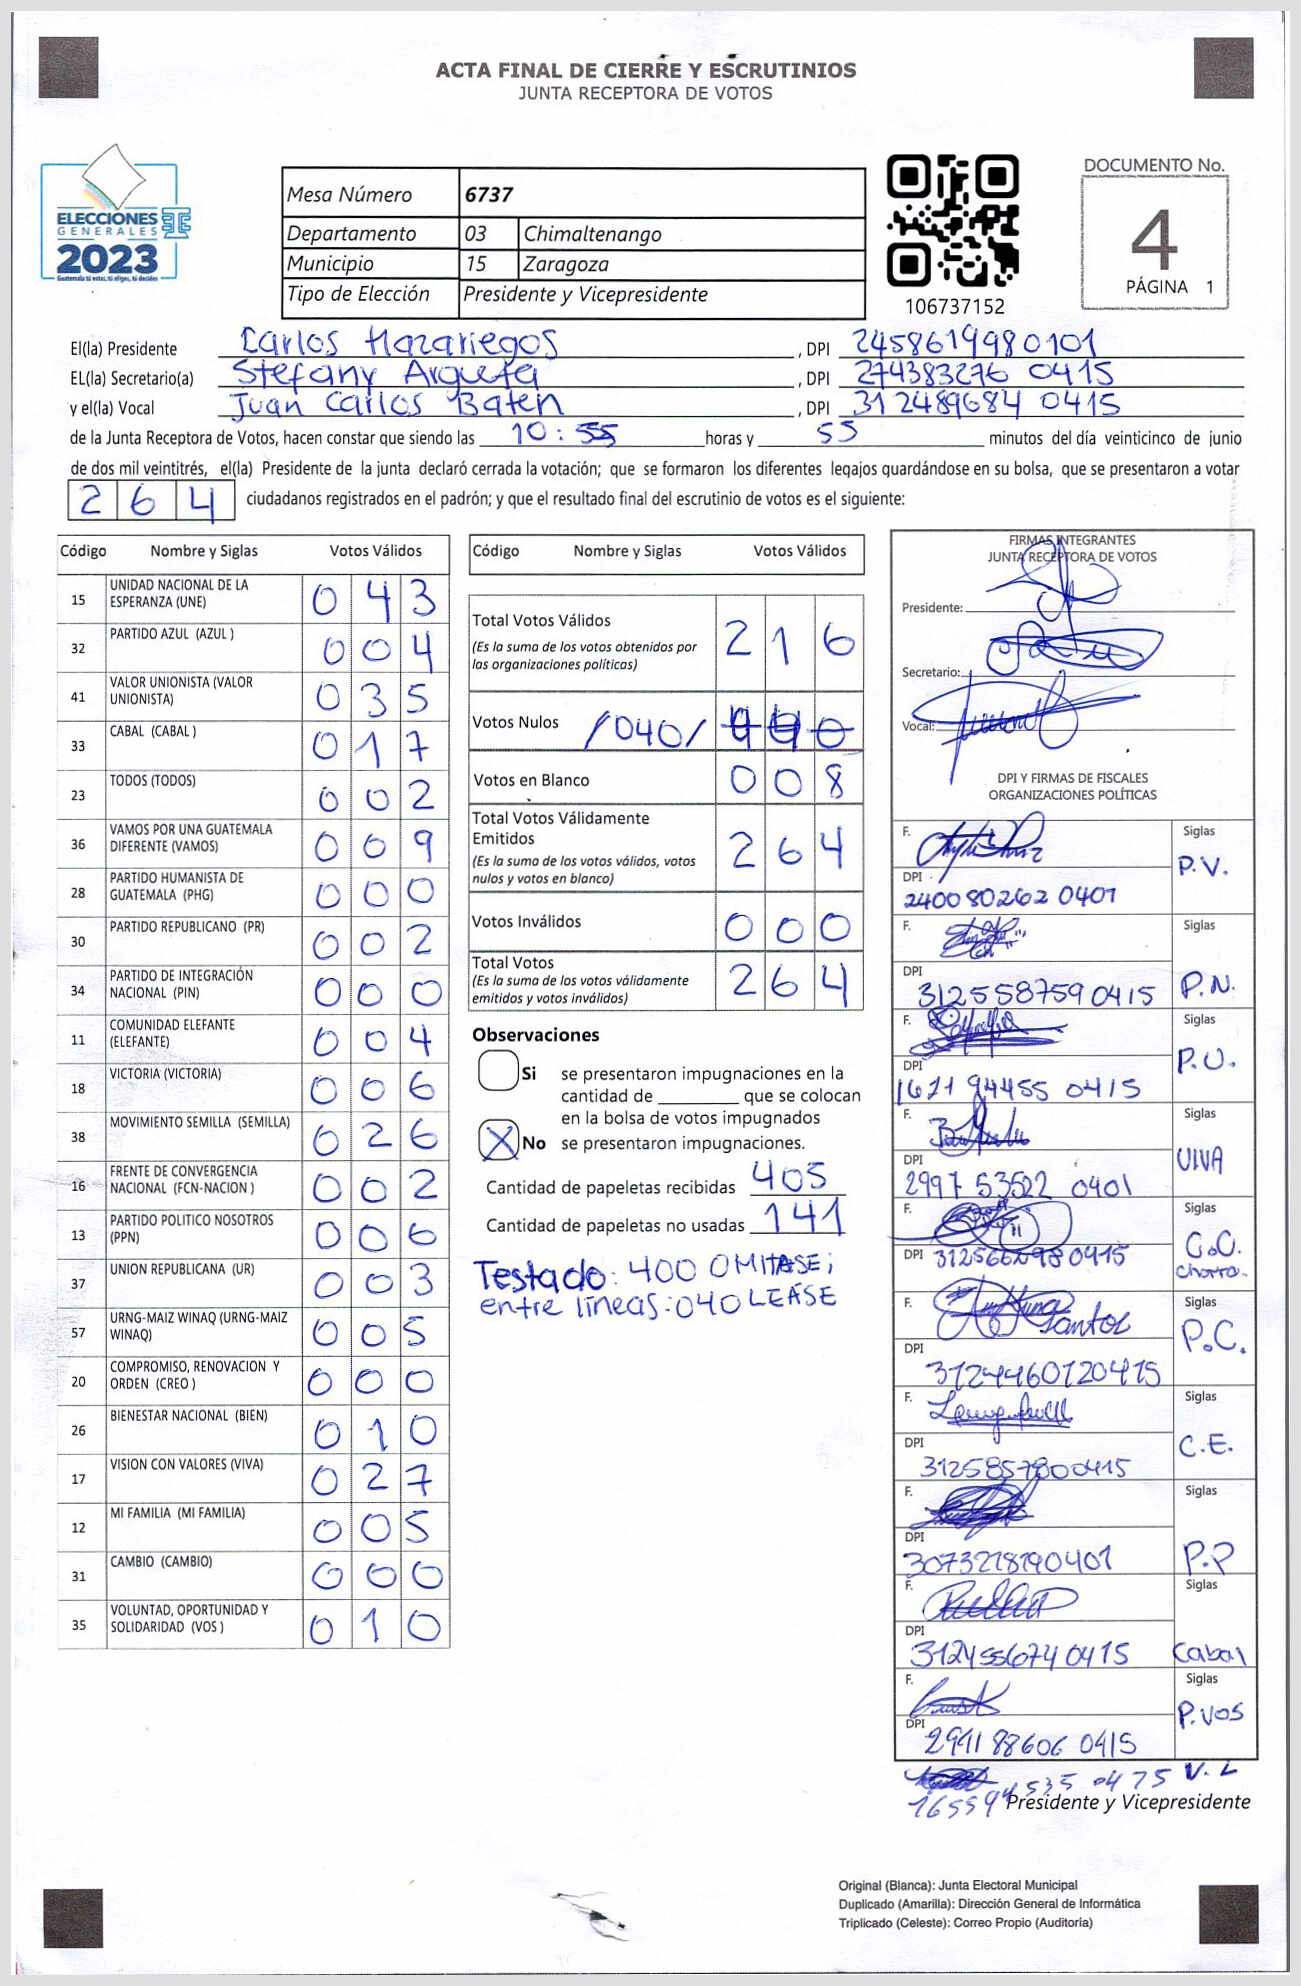 ACTA FINAL DE CIERRE Y ESCRUTINIOS
JUNTA RECEPTORA DE VOTOS
ELECCIONES
GENERALES
2023
Guatemala tú votas, tú eliges, tú decides
Mesa Número 6737
Departamento 03 Chimaltenango
Municipio 15 Zaragoza
Tipo de Elección Presidente y Vicepresidente
106737152
DOCUMENTO No.
4
PÁGINA 1
El(la) Presidente Carlos Mazariegos , DPI 2458619980101
EL(la) Secretario(a) Stefany Argueta , DPI 274383276 0415
y el(la) Vocal Juan Carlos Baten , DPI 312489684 0415
de la Junta Receptora de Votos, hacen constar que siendo las 10:55 horas y 55 minutos del día veinticinco de junio
de dos mil veintitrés, el(la) Presidente de la junta declaró cerrada la votación; que se formaron los diferentes legajos guardándose en su bolsa, que se presentaron a votar
264 ciudadanos registrados en el padrón; y que el resultado final del escrutinio de votos es el siguiente:
Código Nombre y Siglas Votos Válidos
15 UNIDAD NACIONAL DE LA ESPERANZA (UNE) 043
32 PARTIDO AZUL (AZUL ) 004
41 VALOR UNIONISTA (VALOR UNIONISTA) 035
33 CABAL (CABAL ) 017
23 TODOS (TODOS) 002
36 VAMOS POR UNA GUATEMALA DIFERENTE (VAMOS) 009
28 PARTIDO HUMANISTA DE GUATEMALA (PHG) 000
30 PARTIDO REPUBLICANO (PR) 002
34 PARTIDO DE INTEGRACIÓN NACIONAL (PIN) 000
11 COMUNIDAD ELEFANTE (ELEFANTE) 004
18 VICTORIA (VICTORIA) 006
38 MOVIMIENTO SEMILLA (SEMILLA) 026
16 FRENTE DE CONVERGENCIA NACIONAL (FCN-NACION ) 002
13 PARTIDO POLITICO NOSOTROS (PPN) 006
37 UNION REPUBLICANA (UR) 003
57 URNG-MAIZ WINAQ (URNG-MAIZ WINAQ) 005
20 COMPROMISO, RENOVACION Y ORDEN (CREO ) 000
26 BIENESTAR NACIONAL (BIEN) 010
17 VISION CON VALORES (VIVA) 027
12 MI FAMILIA (MI FAMILIA) 005
31 CAMBIO (CAMBIO) 000
35 VOLUNTAD, OPORTUNIDAD Y SOLIDARIDAD (VOS ) 010
Código Nombre y Siglas Votos Válidos
Total Votos Válidos 216
(Es la suma de los votos obtenidos por
las organizaciones políticas)
Votos Nulos /040/
Votos en Blanco 008
Total Votos Válidamente
Emitidos 264
(Es la suma de los votos válidos, votos
nulos y votos en blanco)
Votos Inválidos 000
Total Votos 264
(Es la suma de los votos válidamente
emitidos y votos inválidos)
Observaciones
Si se presentaron impugnaciones en la
cantidad de ________ que se colocan
en la bolsa de votos impugnados
X No se presentaron impugnaciones.
Cantidad de papeletas recibidas 405
Cantidad de papeletas no usadas 141
Testado: 400 OMITASE;
entre líneas: 040 LEASE
FIRMAS INTEGRANTES
JUNTA RECEPTORA DE VOTOS
Presidente:
Secretario:
Vocal:
DPI Y FIRMAS DE FISCALES
ORGANIZACIONES POLÍTICAS
F. Siglas
DPI P.V.
240080262 0401
F. Siglas
DPI
312558759 0415 P.N.
F. Siglas
DPI P.U.
1671 94455 0415
F. Siglas
DPI UIVA
2997 53522 0401
F. Siglas
DPI 312566298 0415 C.O.C.
F. Santos Siglas
DPI P.C.
3124460120415
F. Siglas
DPI C.E.
3125857800415
F. Siglas
DPI
3073218190401 P.P
F. Siglas
DPI
312455674 0415 Cabal
F. Siglas
DPI P.VOS
2991 88606 0415
165594535 0475 V.L
Presidente y Vicepresidente
Original (Blanca): Junta Electoral Municipal
Duplicado (Amarilla): Dirección General de Informática
Triplicado (Celeste): Correo Propio (Auditoría)